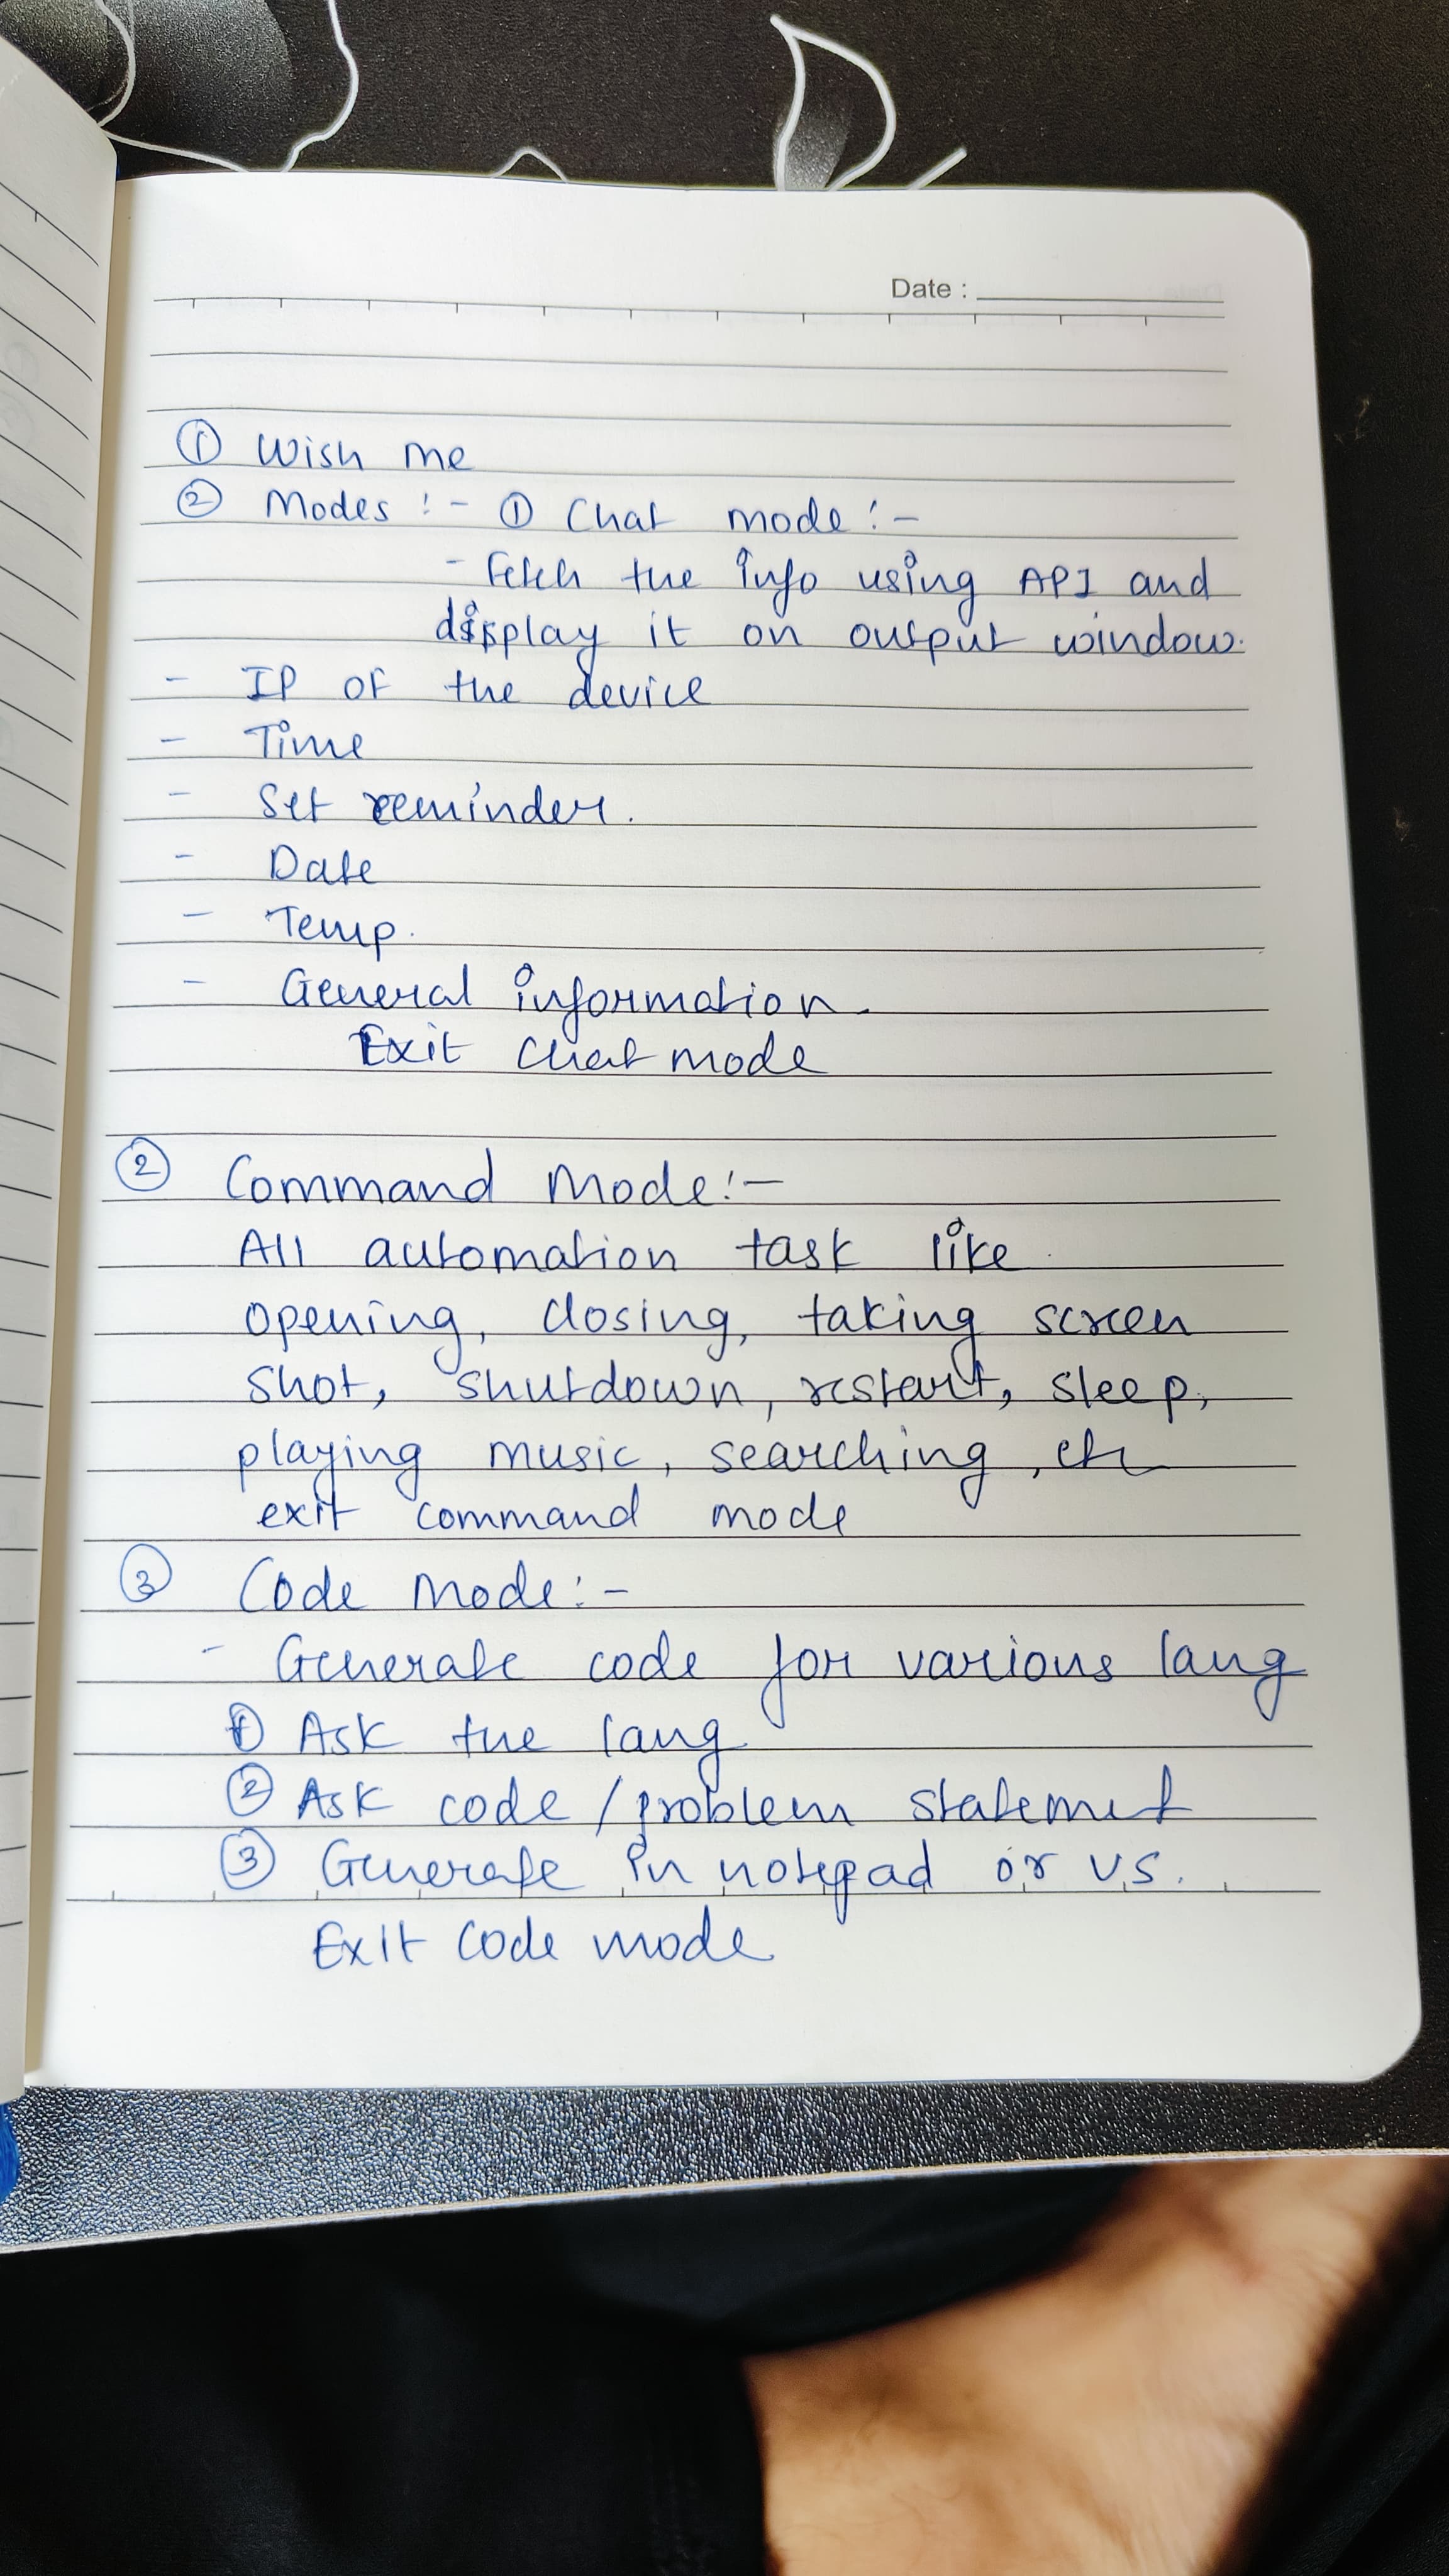 Date :
① Wish me
② Modes :- ① Chat mode :-
- Fetch the info using API and
display it on output window.
- IP of the device
- Time
- Set reminder.
- Date
- Temp.
- General information.
Exit chat mode
② Command Mode :-
All automation task like
opening, closing, taking screen
shot, shutdown, restart, sleep,
playing music, searching, etc
exit command mode
③ Code Mode :-
- Generate code for various lang
① Ask the lang
② Ask code / problem statement
③ Generate in notepad or VS.
Exit code mode